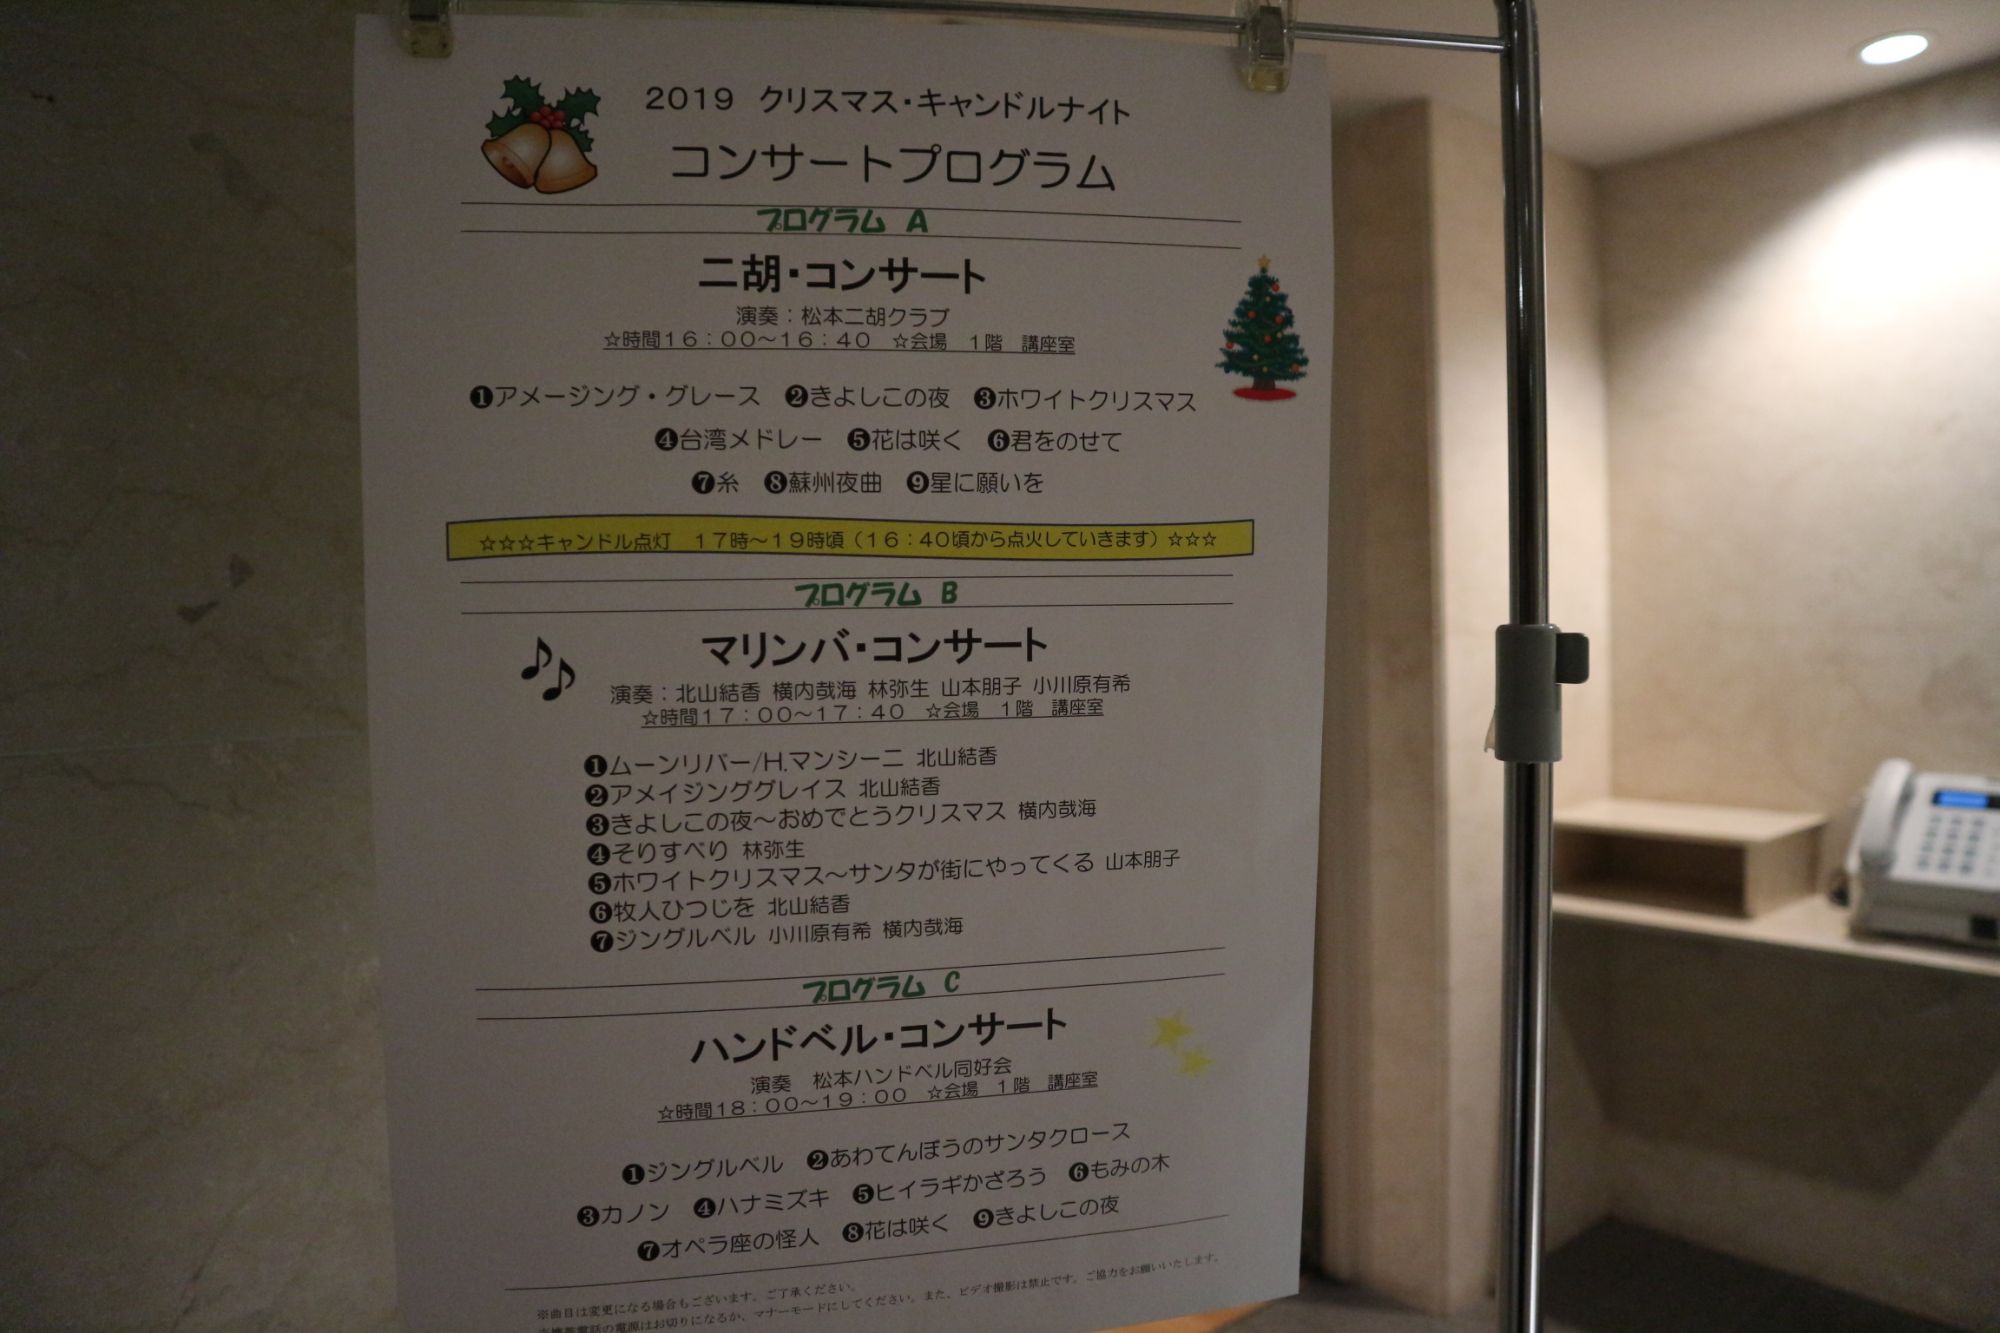 2019 クリスマス・キャンドルナイト
コンサートプログラム
プログラム A
二胡・コンサート
演奏：松本二胡クラブ
☆時間16：00～16：40 ☆会場 1階 講座室
❶アメージング・グレース ❷きよしこの夜 ❸ホワイトクリスマス
❹台湾メドレー ❺花は咲く ❻君をのせて
❼糸 ❽蘇州夜曲 ❾星に願いを
☆☆☆キャンドル点灯 17時～19時頃（16：40頃から点火していきます）☆☆☆
プログラム B
マリンバ・コンサート
演奏：北山結香 横内哉海 林弥生 山本朋子 小川原有希
☆時間17：00～17：40 ☆会場 1階 講座室
❶ムーンリバー/H.マンシーニ 北山結香
❷アメイジンググレイス 北山結香
❸きよしこの夜～おめでとうクリスマス 横内哉海
❹そりすべり 林弥生
❺ホワイトクリスマス～サンタが街にやってくる 山本朋子
❻牧人ひつじを 北山結香
❼ジングルベル 小川原有希 横内哉海
プログラム C
ハンドベル・コンサート
演奏 松本ハンドベル同好会
☆時間18：00～19：00 ☆会場 1階 講座室
❶ジングルベル ❷あわてんぼうのサンタクロース
❸カノン ❹ハナミズキ ❺ヒイラギかざろう ❻もみの木
❼オペラ座の怪人 ❽花は咲く ❾きよしこの夜
※曲目は変更になる場合もございます。ご了承ください。
の電源はお切りになるか、マナーモードにしてください。また、ビデオ撮影は禁止です。ご協力をお願いいたします。